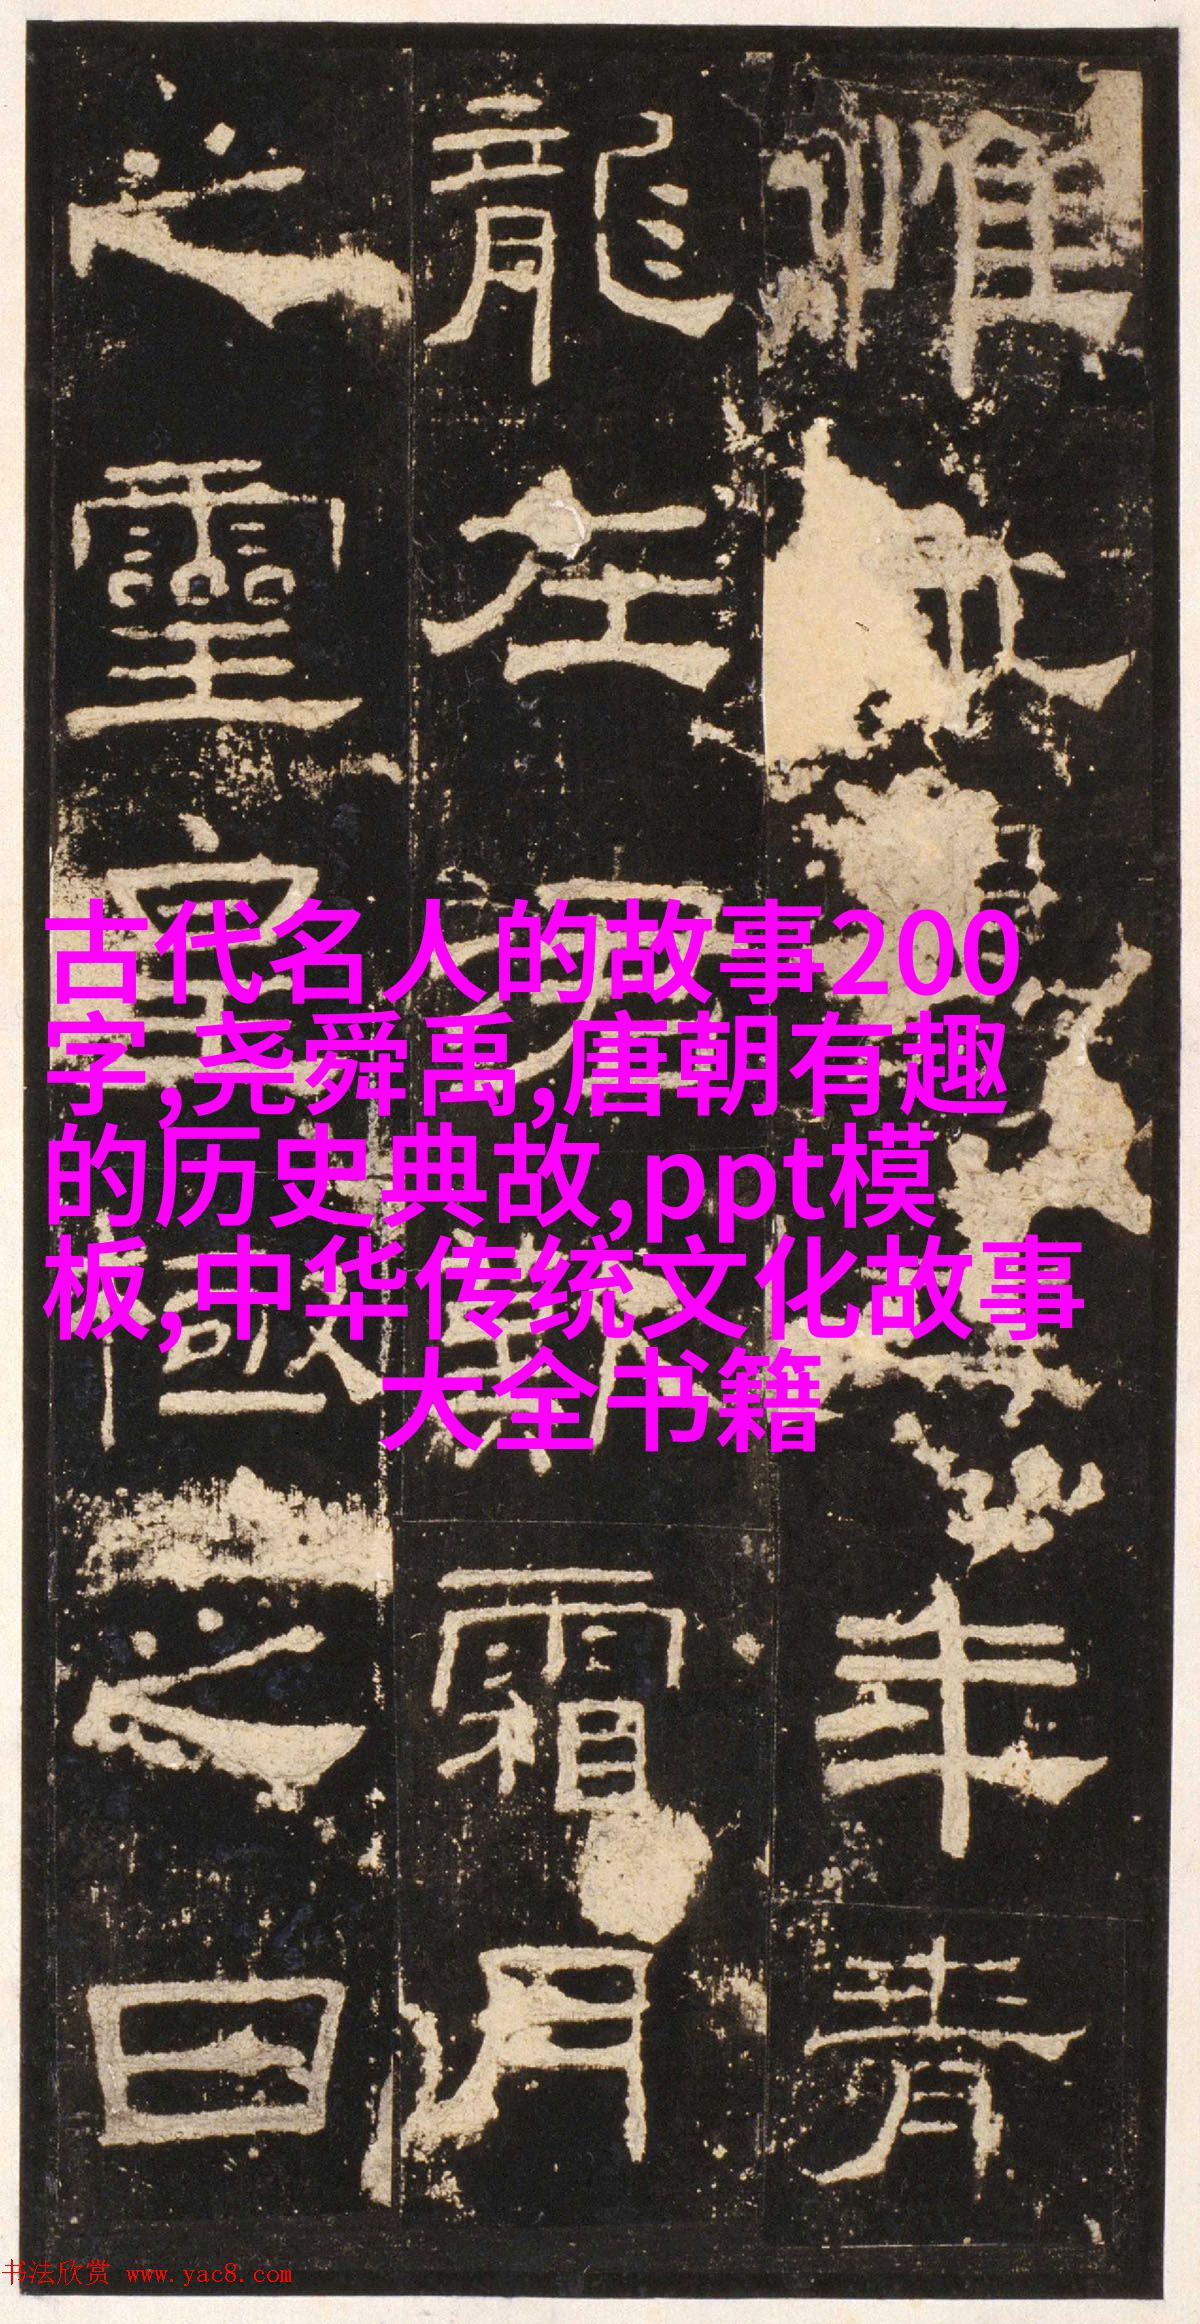 惟
年青
龍在
霜月
之靈
極之日
古代名人的故事200
字,尧舜禹,唐朝有趣
的历史典故,ppt模
板,中华传统文化故事
大全书籍
书法欣赏 www.yac8.com